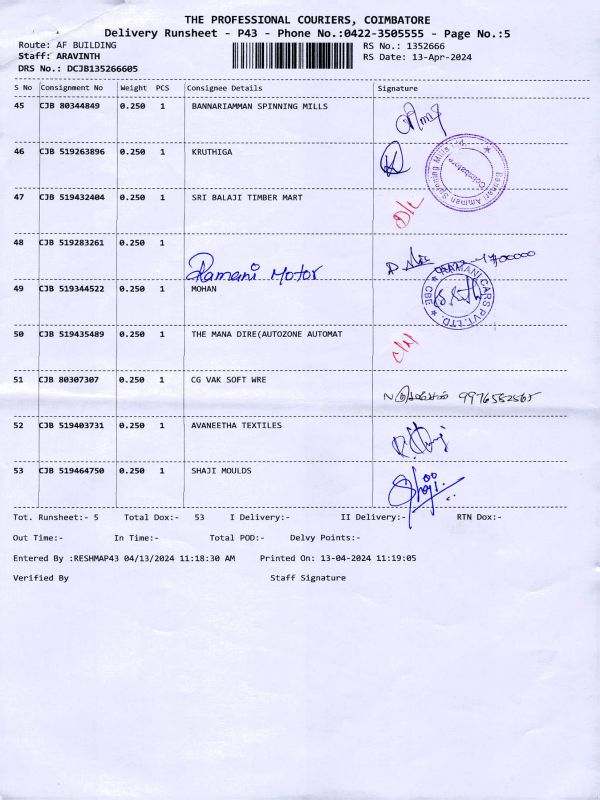 THE PROFESSIONAL COURIERS, COIMBATORE
Delivery Runsheet - P43 - Phone No.:0422-3505555 - Page No.:5
Route: AF BUILDING RS No.: 1352666
Staff: ARAVINTH RS Date: 13-Apr-2024
DRS No.: DCJB135266605
S No Consignment No Weight PCS Consignee Details Signature
45 CJB 80344849 0.250 1 BANNARIAMMAN SPINNING MILLS
46 CJB 519263896 0.250 1 KRUTHIGA
Bannari Amman Spinning Mills Ltd. Coimbatore
47 CJB 519432404 0.250 1 SRI BALAJI TIMBER MART D/L
48 CJB 519283261 0.250 1
Ramani Motor
49 CJB 519344522 0.250 1 MOHAN
RAMANI CARS PVT. LTD. CBE
50 CJB 519435489 0.250 1 THE MANA DIRE(AUTOZONE AUTOMAT
51 CJB 80307307 0.250 1 CG VAK SOFT WRE
9976552565
52 CJB 519403731 0.250 1 AVANEETHA TEXTILES
53 CJB 519464750 0.250 1 SHAJI MOULDS Shaji
Tot. Runsheet:- 5 Total Dox:- 53 I Delivery:- II Delivery:- RTN Dox:-
Out Time:- In Time:- Total POD:- Delvy Points:-
Entered By :RESHMAP43 04/13/2024 11:18:30 AM Printed On: 13-04-2024 11:19:05
Verified By Staff Signature